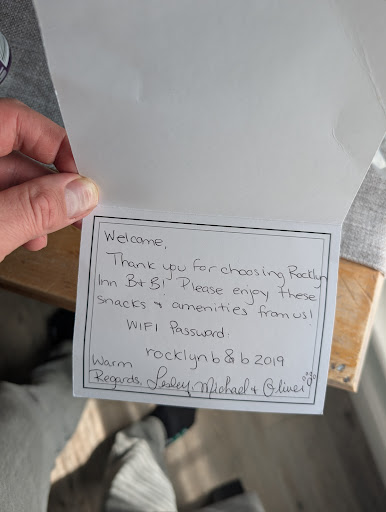 Welcome,
Thank you for choosing Rocklyn
Inn B+B! Please enjoy these
snacks + amenities from us!
WIFI Password:
rocklynb&b2019
Warm
Regards, Lesley, Michael + Oliver